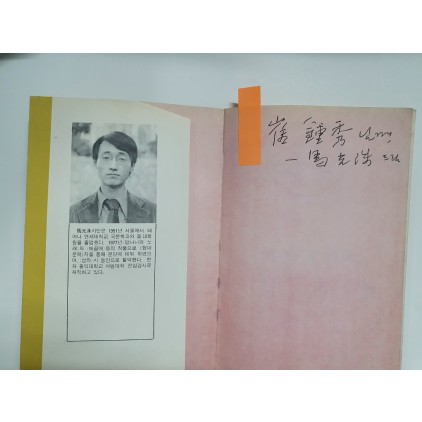 崔 鍾 秀 님께,
— 馬光洙 드림
馬光洙시인은 1951년 서울에서 태
어나 연세대학교 국문학과와 동 대학
원을 졸업했다. 1977년 망나니의 노
등의 작품으로 〈현대
문학〉지를 통해 문단에 데뷔 하였으
며, 시 동인으로 활약했다. 현
재 홍익대학교 사범대학 전임강사로
재직하고 있다.